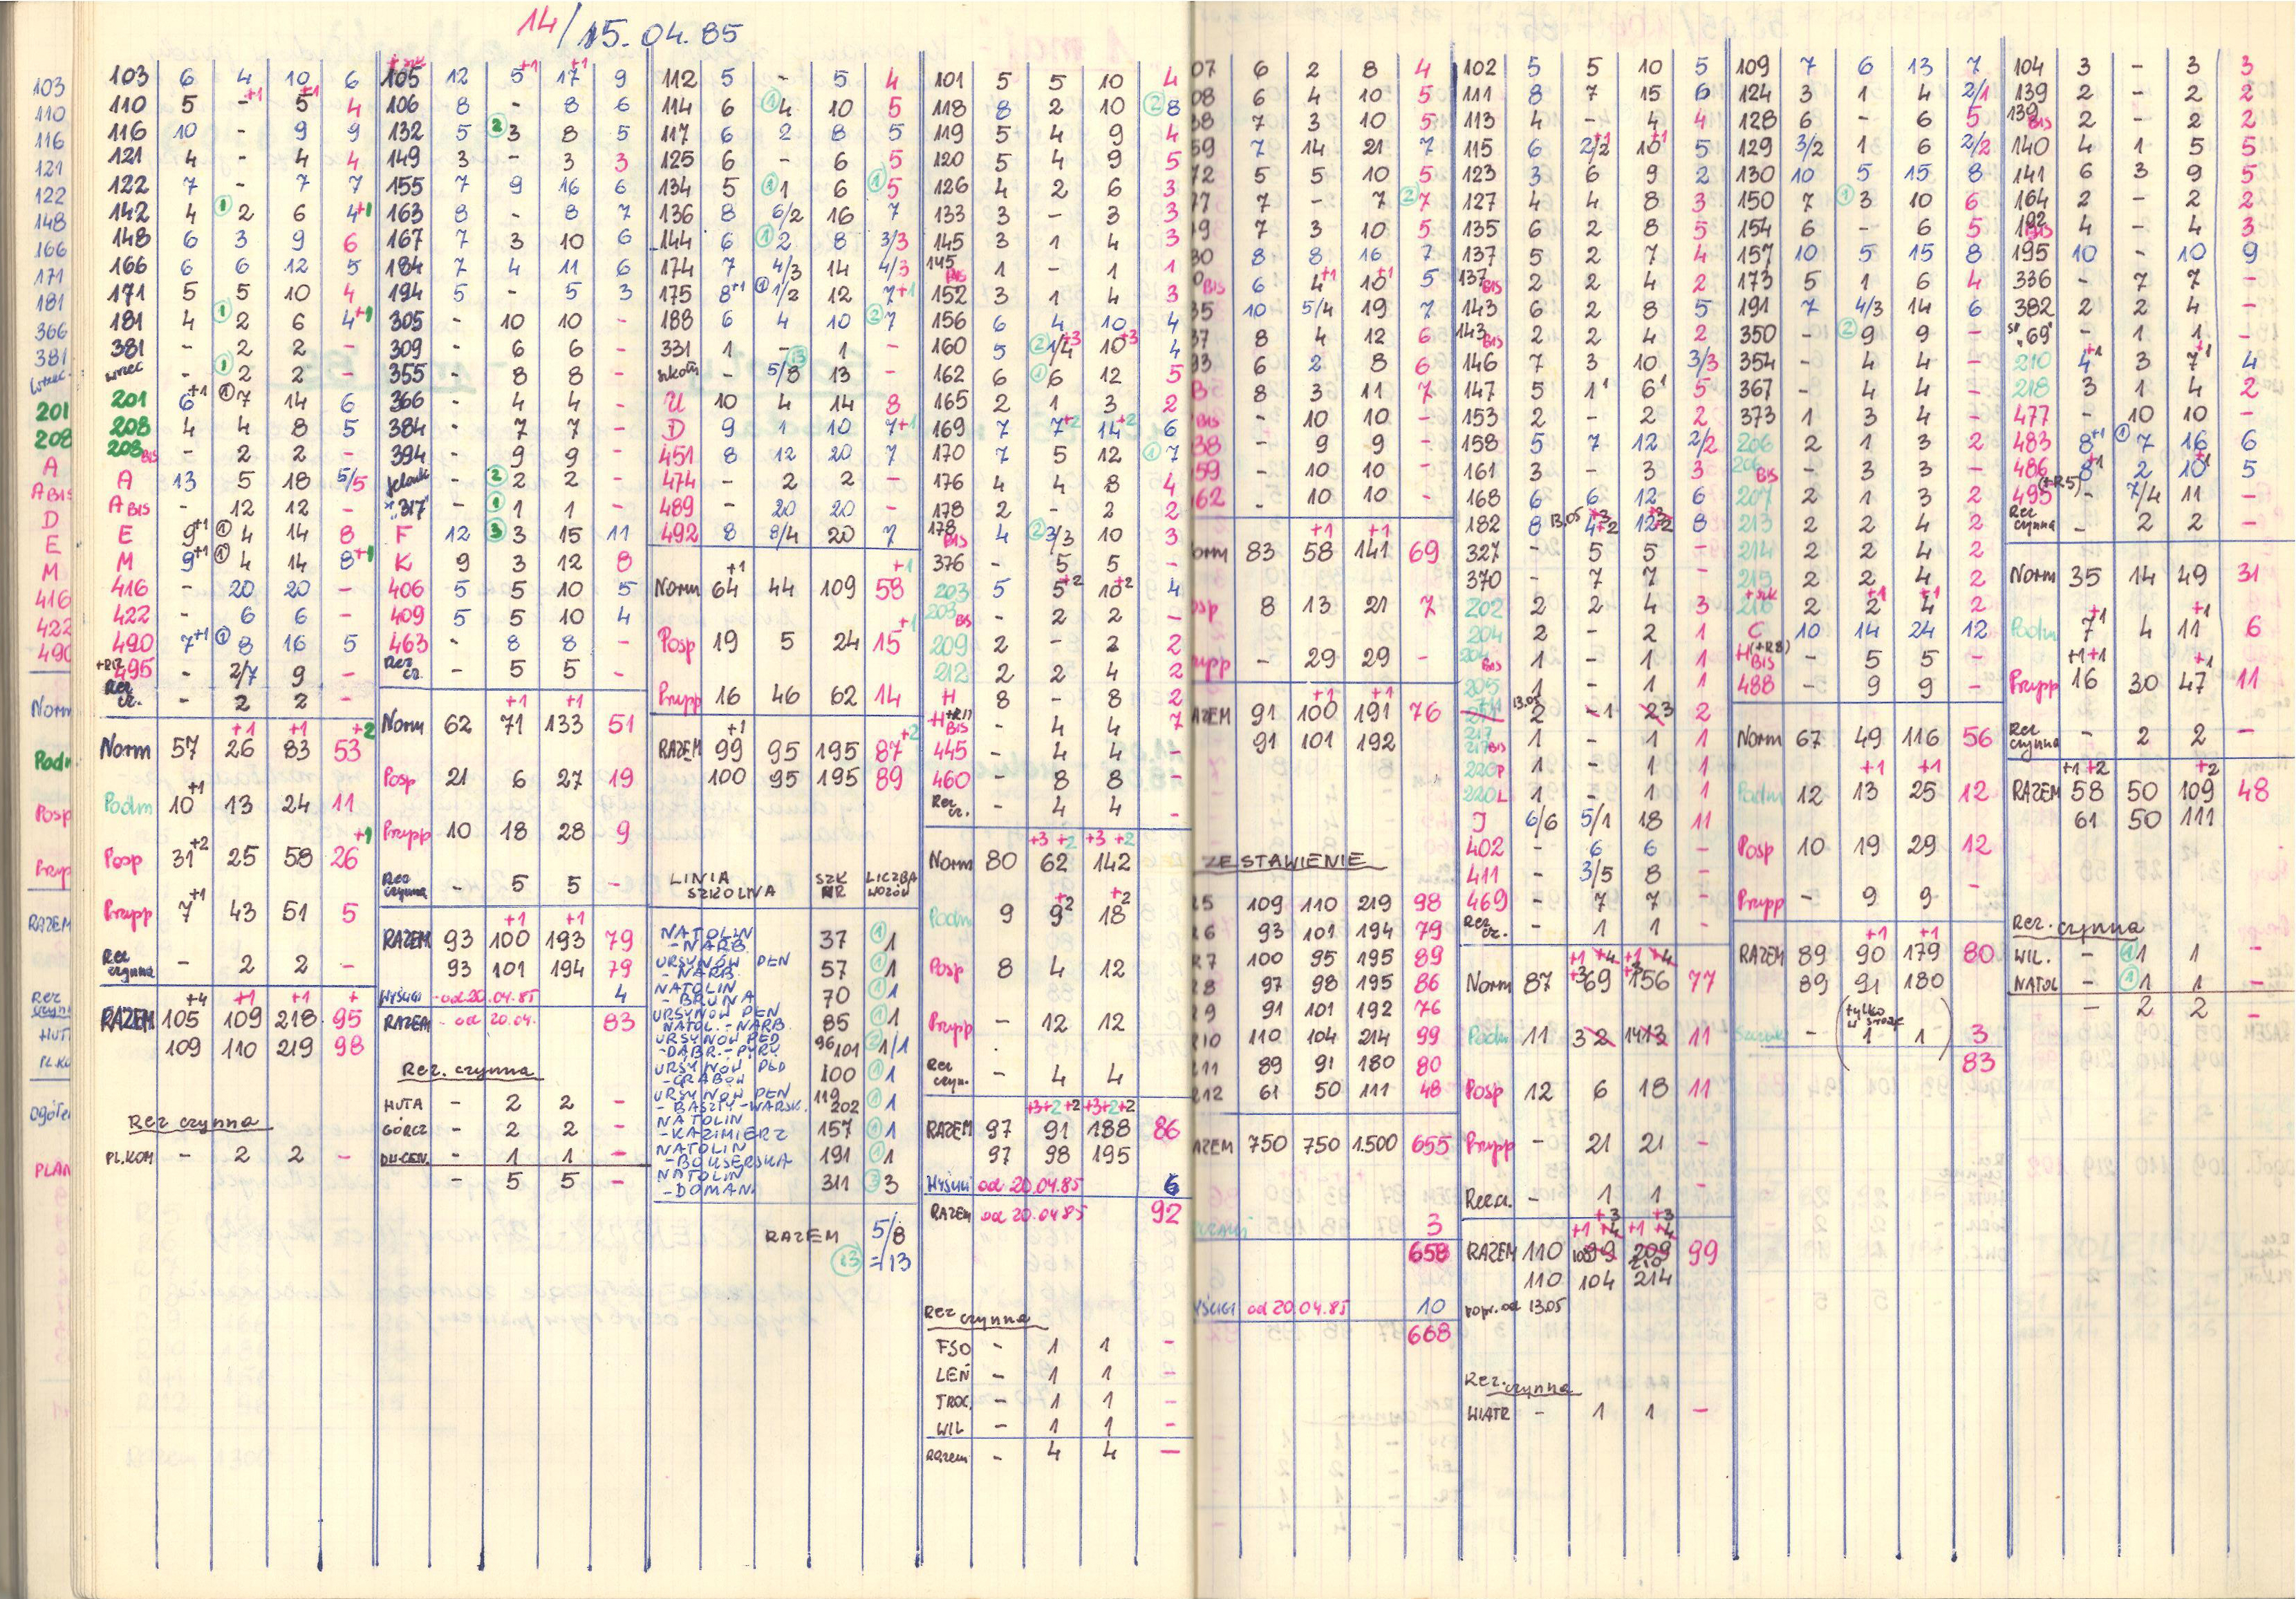 14/15.04.85
103 6 4 10 6
110 5 -+1 5+1 4
116 10 - 9 9
121 4 - 4 4
122 7 - 7 7
142 4 ① 2 6 4+1
148 6 3 9 6
166 6 6 12 5
171 5 5 10 4
181 4 ① 2 6 4+1
381 - 2 2 -
wrzec - ① 2 2 -
201 6+1 ① 7 14 6
208 4 4 8 5
208 BIS - 2 2 -
A 13 5 18 5/5
A BIS - 12 12 -
E 9+1 ① 4 14 8
M 9+1 ① 4 14 8+1
416 - 20 20 -
422 - 6 6 -
490 7+1 ① 8 16 5
495 - 2/7 9 -
Rez cz. - 2 2 -
+1 +1 +2
Norm 57 26 83 53
Podm 10+1 13 24 11
Posp 31+2 25 58 26+1
Przysp 7+1 43 51 5
Rez czynna - 2 2 -
+4 +1 +1 +
RAZEM 105 109 218 95
109 110 219 98
Rez czynna
PL.KOM - 2 2 -
105 12 5+1 17+1 9
106 8 - 8 6
132 5 ② 3 8 5
149 3 - 3 3
155 7 9 16 6
163 8 - 8 7
167 7 3 10 6
184 7 4 11 6
194 5 - 5 3
305 - 10 10 -
309 - 6 6 -
355 - 8 8 -
366 - 4 4 -
384 - 7 7 -
394 - 9 9 -
② 2 2 -
"317" - ① 1 1 -
F 12 ③ 3 15 11
K 9 3 12 8
406 5 5 10 5
409 5 5 10 4
463 - 8 8 -
Rez cz. - 5 5 -
+1 +1
Norm 62 71 133 51
Posp 21 6 27 19
Przysp 10 18 28 9
Rez czynna - 5 5 -
+1 +1
RAZEM 93 100 193 79
93 101 194 79
WYŚCIGI - od 20.04.85 4
RAZEM - od 20.04. 83
Rez. czynna
HUTA - 2 2 -
GÓRCZ - 2 2 -
DW.CEN. - 1 1 -
- 5 5 -
112 5 - 5 4
114 6 ① 4 10 5
117 6 2 8 5
125 6 - 6 5
134 5 ① 1 6 ① 5
136 8 6/2 16 7
144 6 ① 2 8 3/3
174 7 4/3 14 4/3
175 8+1 ① 1/2 12 7+1
188 6 4 10 ② 7
331 1 - 1 -
szkoln - ⑬ 5/8 13 -
U 10 4 14 8
D 9 1 10 7+1
451 8 12 20 7
474 - 2 2 -
489 - 20 20 -
492 8 8/4 20 7
+1 +1
Norm 64 44 109 58
Posp 19 5 24 15+1
Przysp 16 46 62 14
+1 +2
RAZEM 99 95 195 87
100 95 195 89
LINIA SZKOLNA SZK NR LICZBA WOZÓW
NATOLIN - NARB. 37 ① 1
URSYNÓW PŁN - NARB. 57 ① 1
NATOLIN - BRUNA 70 ① 1
URSYNÓW PŁN NATOL. - NARB. 85 ① 1
URSYNÓW PŁD - DĄBR. - PYRY 96 101 ② 1/1
URSYNÓW PŁD - GRABÓW 100 ① 1
URSYNÓW PŁN - BASZTY - WARSK. 119 202 ① 1
NATOLIN - KAZIMIERZ 157 ① 1
NATOLIN - BOKSERSKA 191 ① 1
NATOLIN - DOMAN. 311 ③ 3
RAZEM 5/8
⑬ = 13
101 5 5 10 4
118 8 2 10 ② 8
119 5 4 9 4
120 5 4 9 5
126 4 2 6 3
133 3 - 3 3
145 3 1 4 3
145 BIS 1 - 1 1
152 3 1 4 3
156 6 4 10 4
160 5 ② 1/4+3 10+3 4
162 6 ① 6 12 5
165 2 1 3 2
169 7 7+2 14+2 6
170 7 5 12 ① 7
176 4 4 8 4
178 2 - 2 2
178 BIS 4 ② 3/3 10 3
376 - 5 5 -
203 5 5+2 10+2 4
203 BIS - 2 2 -
209 2 - 2 2
212 2 2 4 2
H 8 - 8 2
H BIS (+R11) - 4 4 7
445 - 4 4 -
460 - 8 8 -
Rez cz. - 4 4 -
+3 +2 +3 +2
Norm 80 62 142
Podm 9 9+2 18+2
Posp 8 4 12
Przysp - 12 12
Rez czyn. - 4 4
+3+2+2 +3+2+2
RAZEM 97 91 188 86
97 98 195
WYŚCIGI od 20.04.85 6
RAZEM od 20.04.85 92
Rez czynna
FSO - 1 1 -
LEŃ - 1 1 -
TROC. - 1 1 -
WIL - 1 1 -
Razem - 4 4 -
07 6 2 8 4
08 6 4 10 5
38 7 3 10 5
59 7 14 21 7
72 5 5 10 5
77 7 - 7 ② 7
79 7 3 10 5
80 8 8 16 7
BIS 6 4+1 10+1 5
35 10 5/4 19 7
37 8 4 12 6
93 6 2 8 6
B 8 3 11 7
BIS - 10 10 -
38 - 9 9 -
59 - 10 10 -
162 - 10 10 -
+1 +1
orm 83 58 141 69
osp 8 13 21 7
zysp - 29 29 -
+1 +1
AZEM 91 100 191 76
91 101 192
ZESTAWIENIE
R5 109 110 219 98
R6 93 101 194 79
R7 100 95 195 89
R8 97 98 195 86
R9 91 101 192 76
R10 110 104 214 99
R11 89 91 180 80
R12 61 50 111 48
AZEM 750 750 1.500 655
3
658
YŚCIGI od 20.04.85 10
668
102 5 5 10 5
111 8 7 15 6
113 4 - 4 4
115 6 2/2+1 10+1 5
123 3 6 9 2
127 4 4 8 3
135 6 2 8 5
137 5 2 7 4
137 BIS 2 2 4 2
143 6 2 8 5
143 BIS 2 2 4 2
146 7 3 10 3/3
147 5 1' 6' 5
153 2 - 2 2
158 5 7 12 2/2
161 3 - 3 3
168 6 6 12 6
182 8 13.05 4+2 12+2 8
327 - 5 5 -
370 - 7 7 -
202 2 2 4 3
204 2 - 2 1
204 BIS 1 - 1 1
205 1 - 1 1
13.05 2 -1 2 3 2
217 BIS 1 - 1 1
220P 1 - 1 1
220L 1 - 1 1
J 6/6 5/1 18 11
402 - 6 6 -
411 - 3/5 8 -
469 - 7 7 -
Rez cz. - 1 1 -
+1 +4 +1 +4
Norm 87 +3 69 +3 156 77
Podm 11 3 2 14 13 11
Posp 12 6 18 11
Przysp - 21 21 -
Rez cz. - 1 1 -
+3 +3
+1 +4 +1 +4
RAZEM 110 99 209 99
110 104 214
popr. od 13.05
Rez. czynna
WIATR - 1 1 -
109 7 6 13 7
124 3 1 4 2/1
128 6 - 6 5
129 3/2 1 6 2/2
130 10 5 15 8
150 7 ① 3 10 6
154 6 - 6 5
157 10 5 15 8
173 5 1 6 4
191 7 4/3 14 6
350 - ② 9 9 -
354 - 4 4 -
367 - 4 4 -
373 1 3 4 -
206 2 1 3 2
BIS - 3 3 -
207 2 1 3 2
213 2 2 4 2
214 2 2 4 2
215 2 2 4 2
216 2 2+1 4+1 2
C 10 14 24 12
H BIS (+R8) - 5 5 -
488 - 9 9 -
Norm 67 49 116 56
+1 +1
Podm 12 13 25 12
Posp 10 19 29 12
Przysp - 9 9 -
+1 +1
RAZEM 89 90 179 80
89 91 180
- (tylko w środę 1 1) 3
83
104 3 - 3 3
139 2 - 2 2
139 BIS 2 - 2 2
140 4 1 5 5
141 6 3 9 5
164 2 - 2 2
192 BIS 4 - 4 3
195 10 - 10 9
336 - 7 7 -
382 2 2 4 -
"69" - 1 1 -
210 4+1 3 7+1 4
218 3 1 4 2
477 - 10 10 -
483 8+1 ① 7 16 6
486 8+1 2 10+1 5
495 (+R5) - 7/4 11 -
Rez czynna - 2 2 -
Norm 35 14 49 31
Podm 7+1 4 11+1 6
+1+1 +1
Przysp 16 30 47 11
Rez czynna - 2 2 -
+1 +2 +2
RAZEM 58 50 109 48
61 50 111
Rez. czynna
WIL. - ① 1 1 -
NATOL - ① 1 1 -
- 2 2 -